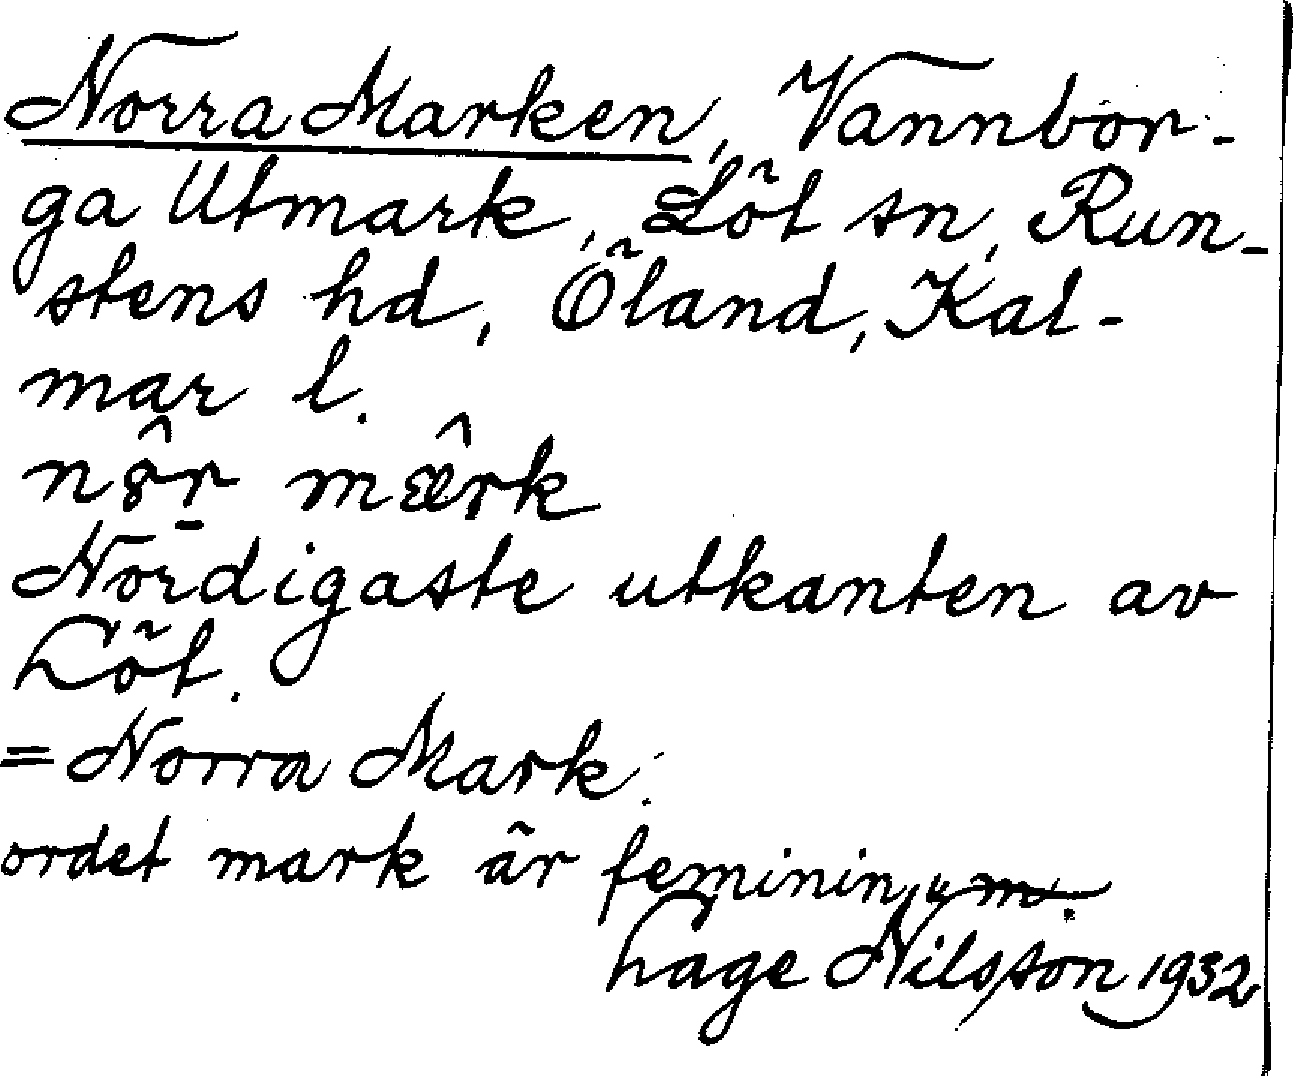 Norra Marken, Vannbor-
ga Utmark, Löt sn, Run-
stens hd, Öland, Kal-
mar l.
nôr mærk
Nordigaste utkanten av
Löt.
= Norra Mark.
ordet mark är femininum.
Lage Nilsson 1932